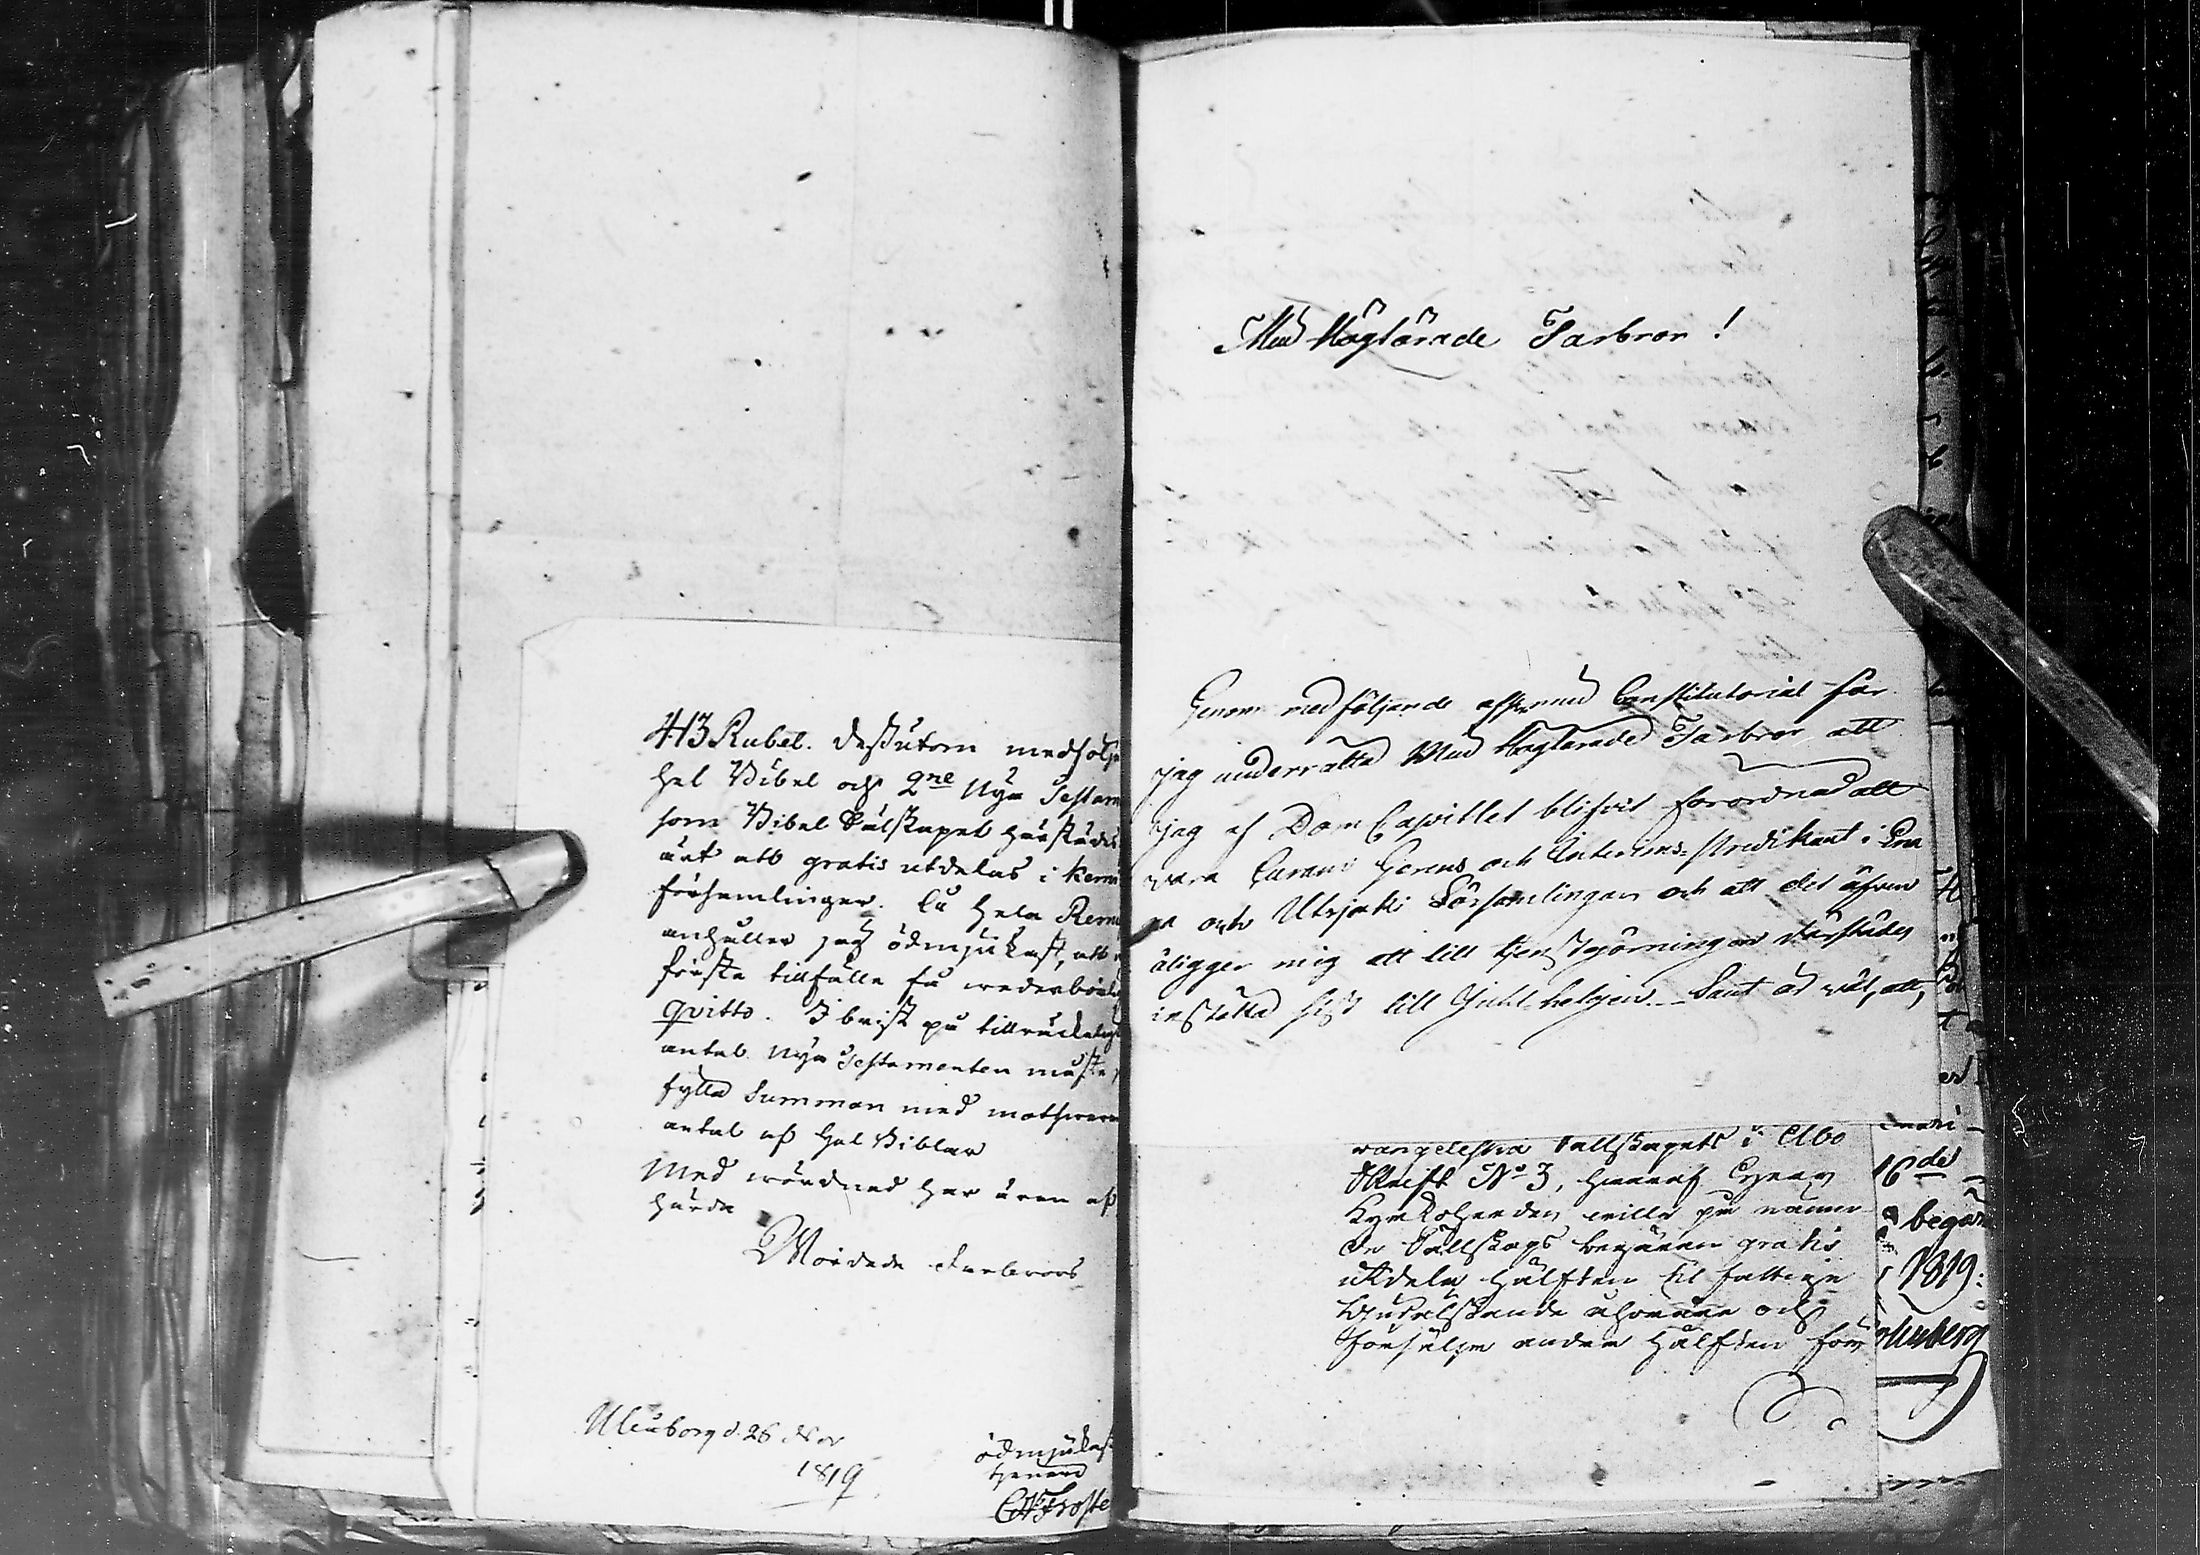 413 Rubel. Dessutom medfölje
hel Bibel och 2ne Nya Testam
som Bibel Sälskapet härstädes
ärt att gratis utdelas i Kemi
församlingar. Å hela Remi
anhåller jag ödmjukast, att
första tillfälle få wederbörlig
qvitto. I brist på tillräckeligt
antal Nya Testamenten måste
fylla Summan med motsware
antal af hel Biblar
Med wördnad har äran at
härda
Wördade Farbrors
Uleåborg d. 26 Nov
1819
ödmjukast
tjenare
CHFroste
Med Höglärade Farbror!
Genom medföljande Constitutorial får
jag underrätta Med Höglärade Farbror att
jag af Dom Capitlet blifvit förordnad att
vara Curam Gerens och Interims-Predikant i
och Utsjoki Församlingar och att det äfven
åligger mig att till tjenstgörningen därstädes
inställa sist till Juhl-helgen. Sant är väl, att,
vangeliska Sällskapets i Åbo
Skrift No 3, hwaraf
Kyrkoherden wille på nämn
de Sällskaps begäran gratis
utdela hälften til fattige
Gudälskande åhörare och
försälja andra hälften för
16de
begär
1819: